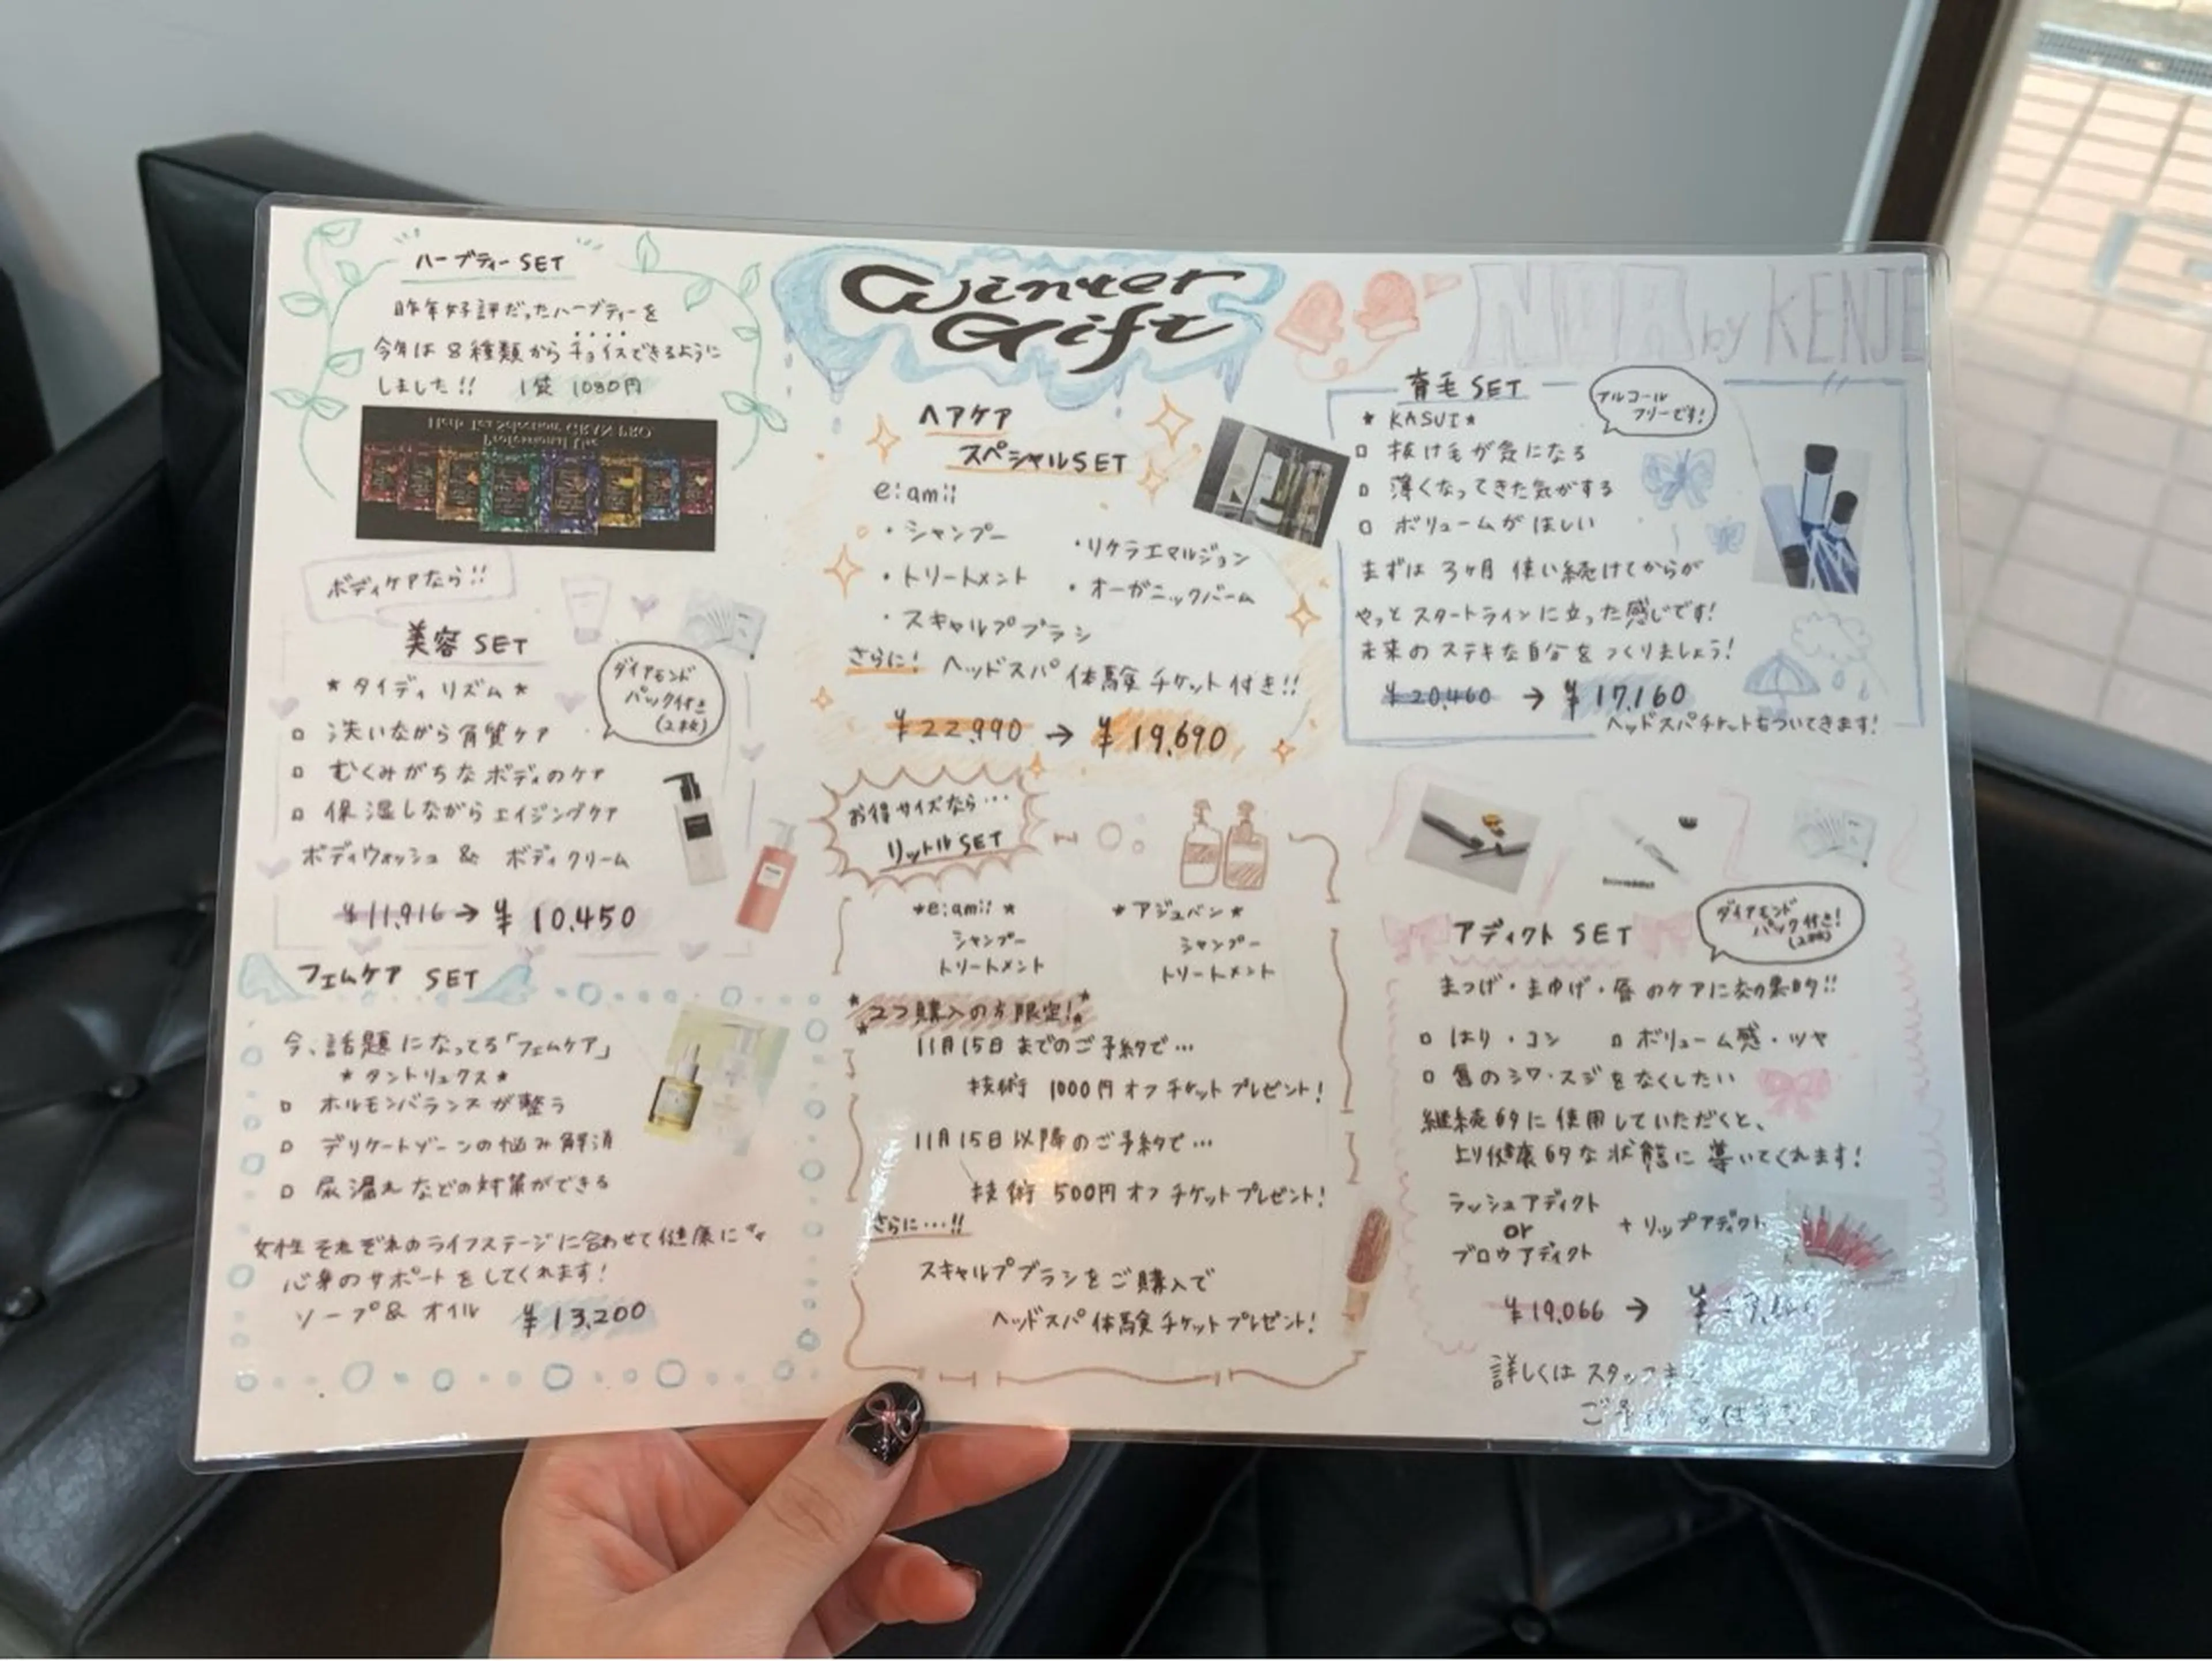 Winter
Gift
by KENJE
ハーブティーSET
昨年好評だったハーブティーを
今年は8種類からチョイスできるように
しました!! 1袋 1080円
Herb Tea Selection GRAN PRO
Professional Use
ボディケアなら!!
美容 SET
ダイアモンド
パック付き
(2枚)
★タイディリズム★
□ 洗いながら角質ケア
□ むくみがちなボディのケア
□ 保湿しながらエイジングケア
ボディウォッシュ & ボディクリーム
¥11,916→¥10,450
フェムケア SET
今、話題になってる「フェムケア」
★タントリュクス★
□ ホルモンバランスが整う
□ デリケートゾーンの悩み解消
□ 尿漏れなどの対策ができる
女性それぞれのライフステージに合わせて健康に
心身のサポートをしてくれます!
ソープ&オイル ¥13,200
ヘアケア
スペシャルSET
e:amii
・シャンプー ・リケラエマルジョン
・トリートメント ・オーガニックバーム
・スキャルプブラシ
さらに! ヘッドスパ体験チケット付き!!
¥22,990→¥19,690
お得サイズなら…
リットルSET
★e:amii★ ★アジュバン★
シャンプー シャンプー
トリートメント トリートメント
2つ購入の方限定!
11月15日までのご予約で…
技術 1000円オフチケットプレゼント!
11月15日以降のご予約で…
技術 500円オフチケットプレゼント!
さらに…!!
スキャルプブラシをご購入で
ヘッドスパ体験チケットプレゼント!
育毛 SET
アルコール
フリーです!
★KASUI★
□ 抜け毛が気になる
□ 薄くなってきた気がする
□ ボリュームがほしい
まずは3ヶ月使い続けてからが
やっとスタートラインに立った感じです!
未来のステキな自分をつくりましょう!
¥20,460→¥17,160
ヘッドスパチケットもついてきます!
アディクト SET
ダイアモンド
パック付き!
(2枚)
まつげ・まゆげ・唇のケアに効果的!!
□ はり・コシ □ ボリューム感・ツヤ
□ 唇のシワ・スジをなくしたい
継続的に使用していただくと、
より健康的な状態に導いてくれます!
ラッシュアディクト
or
ブロウアディクト
+リップアディクト
¥19,066→¥
詳しくはスタッフま